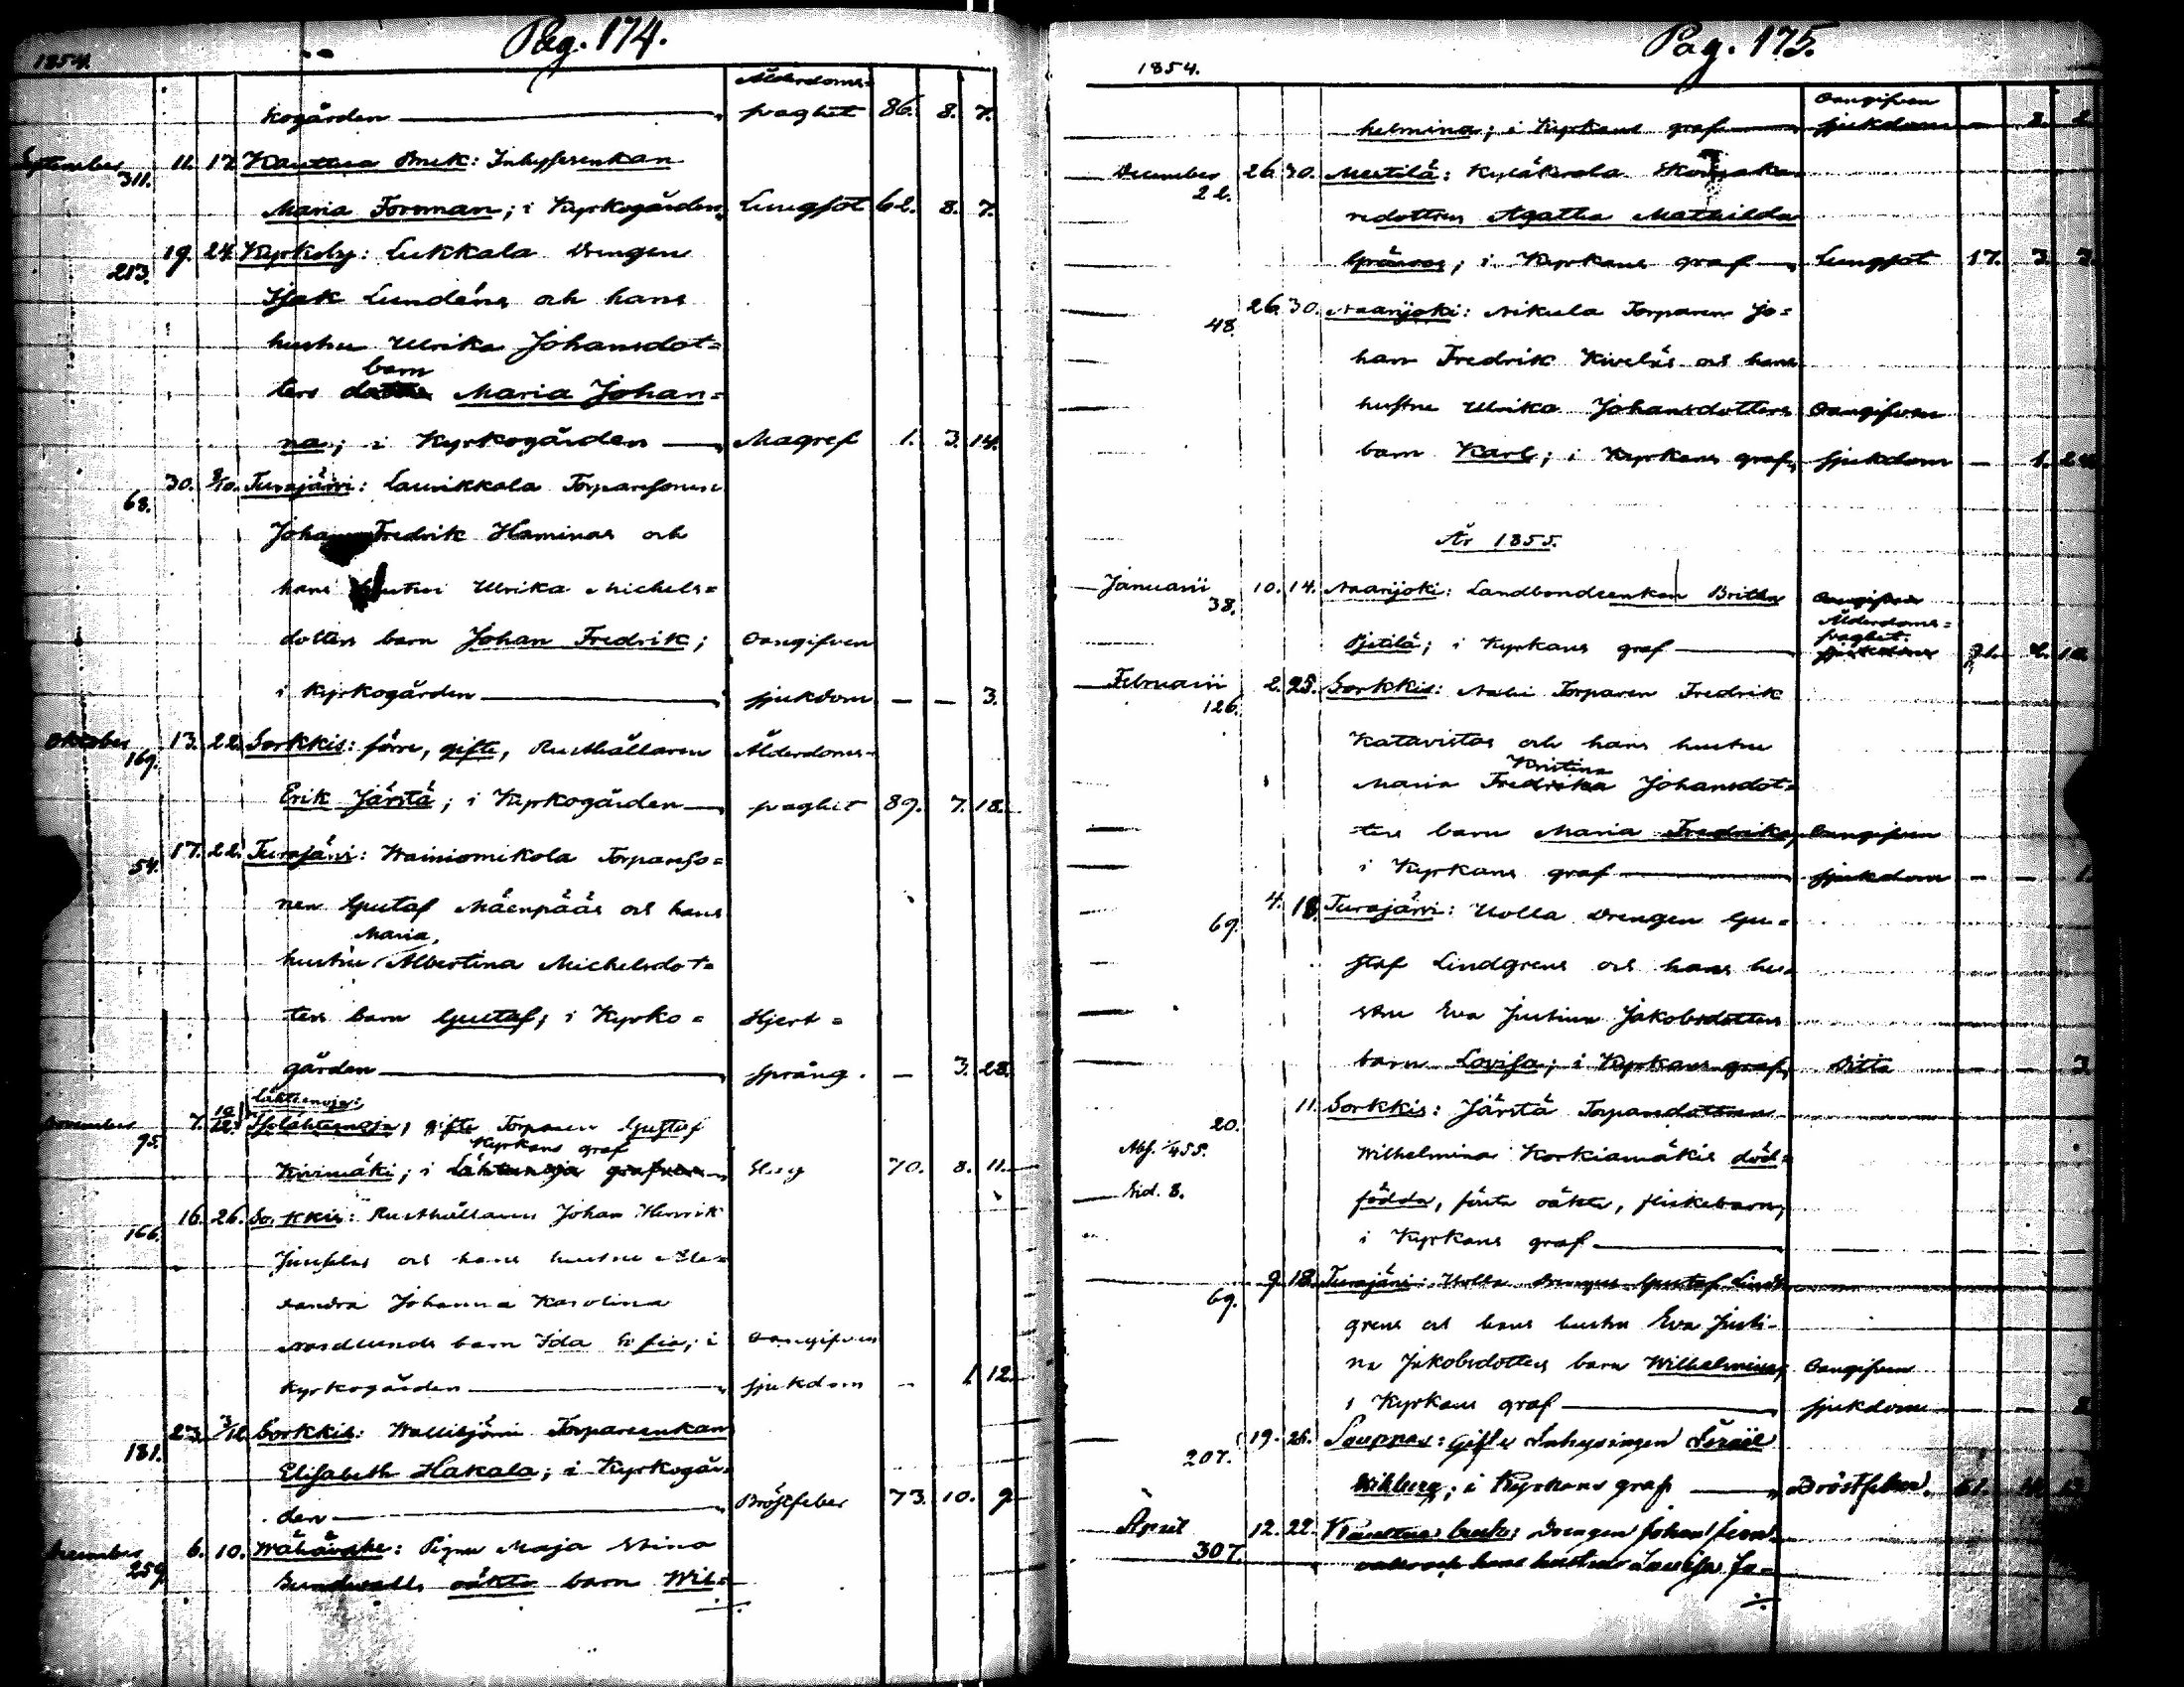 Pag. 174.
1854.
Ålderdoms=
kogården — svaghet 86. 8. 7.
September 11. 17. Kauttua Bruk: Inhysesenkan
311.
Maria Forsman; i Kyrkogården, Lungsot 62. 8. 7.
19. 24. Kyrkoby: Lukkala Drengen
213.
Isak Lundéns och hans
hustru Ulrika Johansdot=
barn
ters Maria Johan=
nas; i Kyrkogården — Magref 1. 3. 14.
30. 8/10. Turajärvi: Laurikkala Torparesonen
68.
Johan Fredrik Haminas och
hans hustru Ulrika Michels=
dotters barn Johan Fredrik; Oangifven
i Kyrkogården — sjukdom — — 3.
Oktober 13. 22. Sorkkis: förre, gifte, Rusthållaren Ålderdoms=
169.
Erik Järstä; i Kyrkogården — svaghet 89. 7. 18.
17. 22. Turajärvi: Wainiomikola Torpareso=
54.
nen Gustaf Mäenpääs och hans
Maria
hustru Albertina Michelsdot=
ters barn Gustaf; i Kyrko= Hjert=
gården — språng. — 3. 28.
Lähteenoja:
November 7. 10/12. gifte Torparen Gustaf
95.
Kyrkans graf
Kivimäki; i Lähteenoja — Slag 70. 8. 11.
16. 26. Sorkkis: Rusthållaren Johan Henrik
166.
Junhelas och hans hustru Alex=
andra Johanna Karolina
Nordlunds barn Ida Sofia; i Oangifven
Kyrkogården — sjukdom — 1. 12.
23. 3/12. Sorkkis: Wallisjärvi Torpareenkan
181.
Elisabeth Hakala; i Kyrkogår=
den — Bröstfeber 73. 10. 9
December 6. 10. Wähäuske: Pigan Maja Stina
259.
Sundwalls oäkta barn Wil=
Pag. 175.
1854.
Oangifven
helmina; i Kyrkans graf — sjukdom — 2.
December 26. 30. Mestilä: Kyläkvola Skomaka=
22.
redottren Agatha Mathilda
; i Kyrkans graf — Lungsot 17. 3. 3.
26. 30. Naarijoki: Nikula Torparen Jo=
48.
han Fredrik Kiveläs och hans
hustru Ulrika Johansdotters Oangifven
barn Karl; i Kyrkans graf, sjukdom — 1. 24
År 1855.
Januarii 10. 14. Naarijoki: Landbondeenkan Britha Oangifven
38.
Ålderdoms=
svaghet.
Pjetilä; i Kyrkans graf — sjukdom
Februarii 2. 25. Sorkkis: Torparen Fredrik
126.
Katavistos och hans hustru
Kristina
Maria Fredrika Johansdot=
ters barn Maria Fredrika, Oangifven
i Kyrkans graf — sjukdom — — 1
4. 18. Turajärvi: Uolla Drengen Gu=
69.
staf Lindgrens och hans hu=
stru Eva Justina Jakobsdotters
barn Lovisa; i Kyrkans graf, Ditto — — 3
11. Sorkkis: Järstä Torparedottren
20.
Abf. 1/4 55. Wilhelmina Korkiamäkis död=
Sid. 8. födda, första oäkta, flickebarn,
i Kyrkans graf —
9. 18. Turajärvi: Uolla Drengen Gustaf Lind=
69.
grens och hans hustru Eva Justi=
na Jakobsdotters barn Wilhelmina; Oangifven
i Kyrkans graf — sjukdom —
19. 25. Lauppas: Gifte Inhysingen Israel
207.
Wihberg; i Kyrkans graf — Bröstfeber. 61.
April 12. 22. Kauttua bruk: Drengen Johan
307.
och hans hustrus Lovisa Jo=